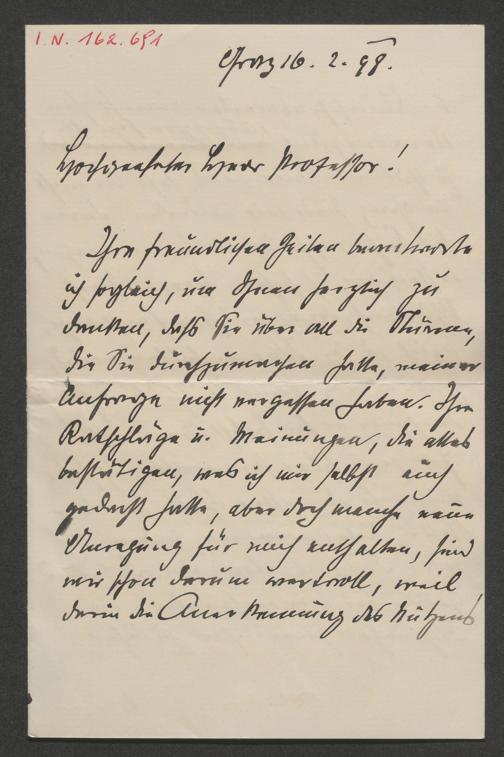 I. N. 162.691
Graz 16. 2. 98.
Hochgeehrter Herr Professor!
Ihre freundlichen Zeilen beantworte
ich sogleich, um Ihnen herzlich zu
danken, daß Sie über all die Stürme,
die Sie durchzumachen hatte, meiner
Anfrage nicht vergessen haben. Ihre
Ratschläge u. Meinungen, die alles
bestätigen, was ich mir selbst auch
gedacht hatte, aber doch manche neue
Anregung für mich enthalten, sind
mir schon darum wertvoll, weil
darin die Anerkennung des Nutzens